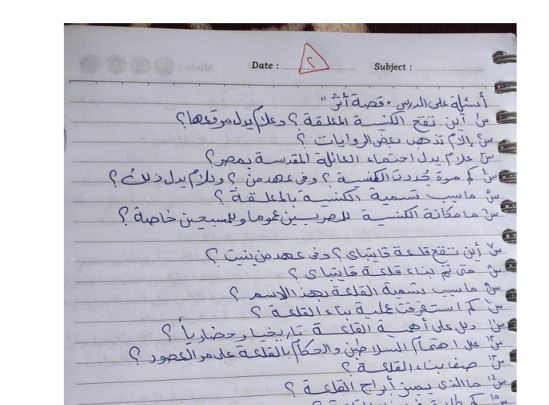 Date : ٢ Subject :
أسئلة على الدرس "قصة أثر"
س١ أين تقع الكنيسة المعلقة ؟ وعلام يدل موقعها؟
س٢ إلام تذهب بعض الروايات ؟
س٣ علام يدل احتماء العائلة المقدسة بمصر؟
س٤ كم مرة جُددت الكنيسة ؟ وفى عهد من ؟ وعلام يدل ذلك ؟
س٥ ما سبب تسمية الكنيسة بالمعلقة ؟
س٦ ما مكانة الكنيسة للمصريين عموما وللمسيحين خاصة ؟
س٧ أين تقع قلعة قايتباى ؟ وفى عهد من بنيت ؟
س٨ متى تم بناء قلعة قايتباى ؟
س٩ ما سبب تسمية القلعة بهذا الاسم ؟
س١٠ كم استغرقت عملية بناء القلعة ؟
س١١ دلل على أهمية القلعة تاريخيا وحضارياً ؟
س١٢ علل اهتمام السلاطين والحكام بالقلعة على مر العصور ؟
س١٣ صف بناء القلعة ؟
س١٤ ما الذى يميز أبراج القلعة ؟